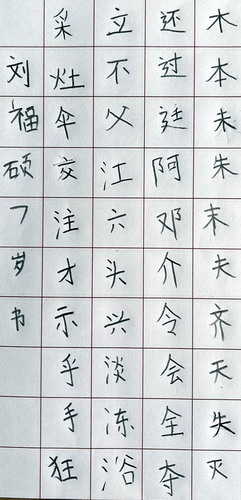 木本未朱末夫齐天失灭
还过廷阿邓介令会全夺
立不父江六头兴淡冻浴
采灶伞交注才示乎手狂
刘福硕岁书